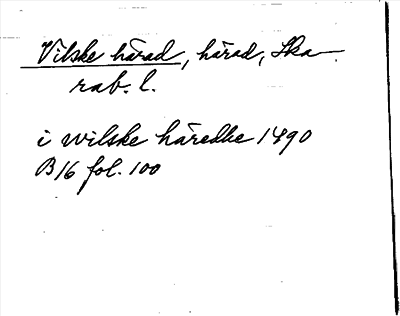 Vilske härad, härad, Ska-
rab. l.
i wilske häredhe 1490
B16 fol. 100